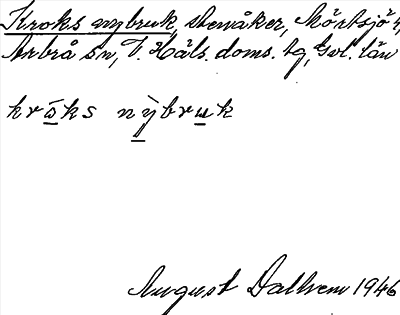 Kroks nybruk, stenåker, Mörtsjö 4,
Arbrå sn, V. Häls. doms. tg, Gvl. län
króks nỳbruk
August Dallrem 1946